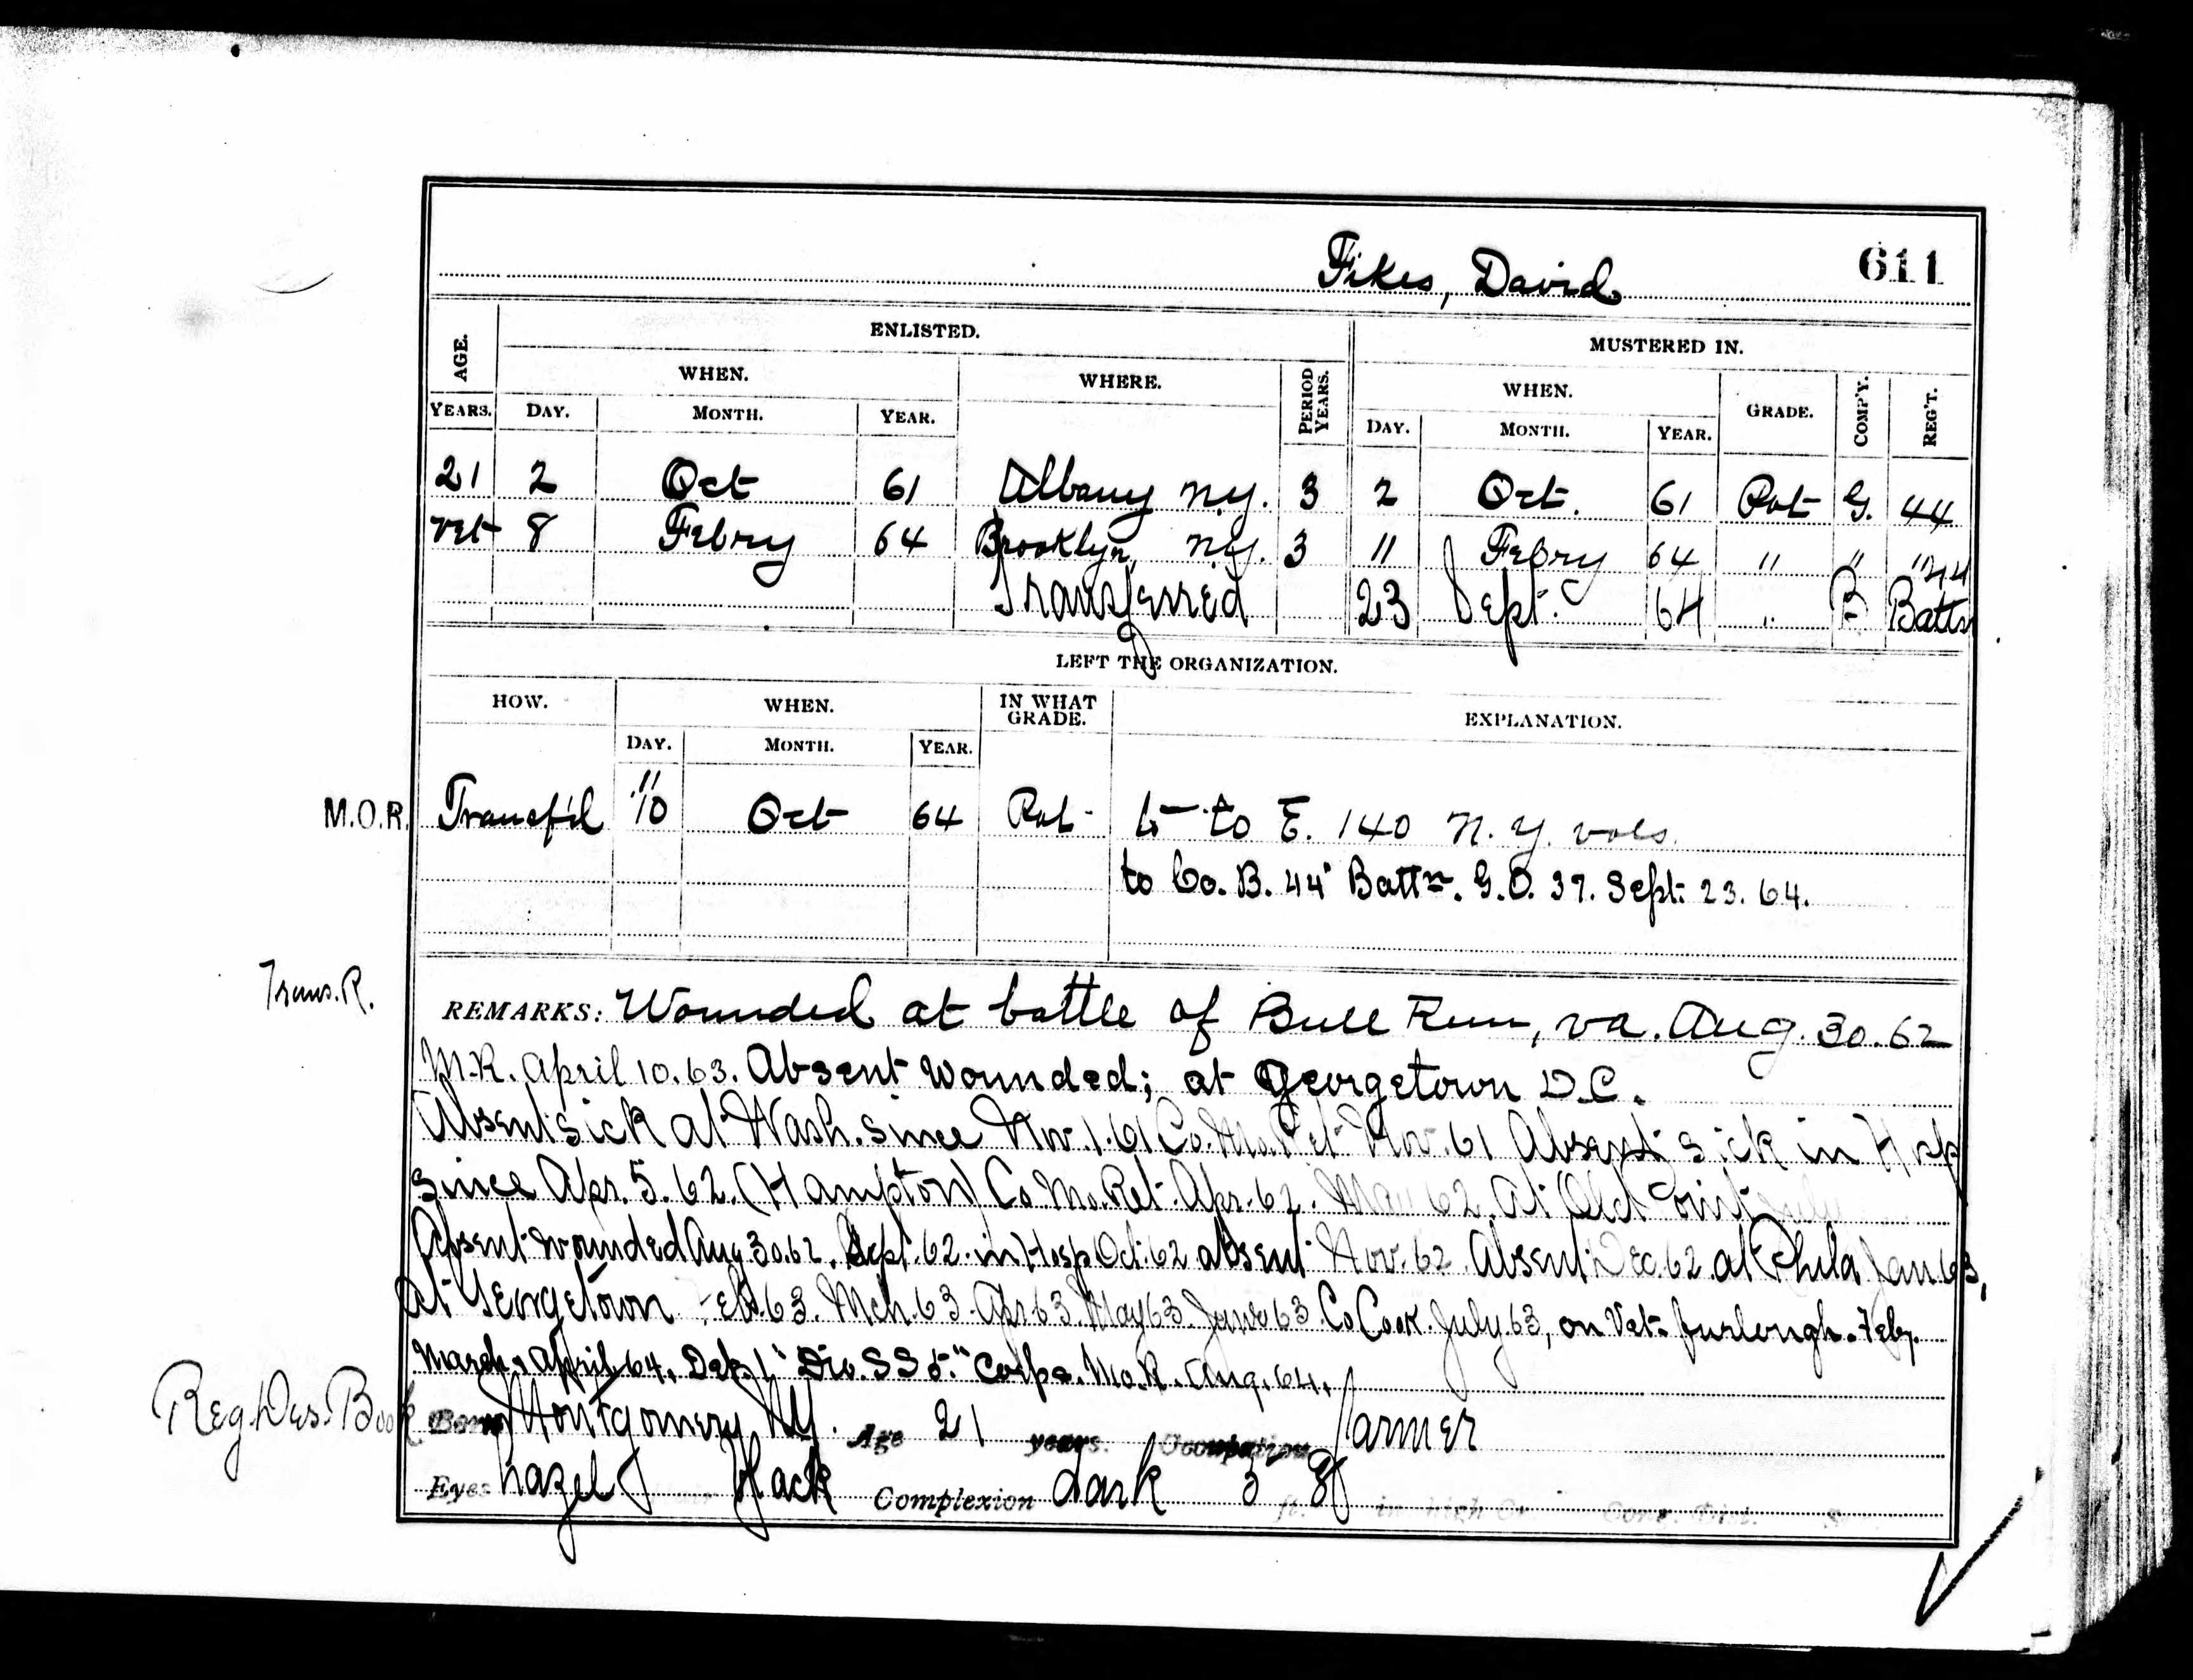 611
Fikes, David
AGE. ENLISTED. MUSTERED IN.
WHEN. WHERE. PERIOD YEARS. WHEN. GRADE. COMP'Y. REG'T.
YEARS. DAY. MONTH. YEAR. DAY. MONTH. YEAR.
21 2 Oct 61 Albany N.Y. 3 2 Oct. 61 Pvt G. 44
Vet 8 Febry 64 Brooklyn, N.Y. 3 11 Febry 64 " " " 44
Transferred 23 Sept. 64 " B Battn
LEFT THE ORGANIZATION.
HOW. WHEN. IN WHAT GRADE. EXPLANATION.
DAY. MONTH. YEAR.
11
M.O.R. Transf'd 10 Oct 64 Pvt - to E. 140 N.Y. vols.
to Co. B. 44" Battn. G.O. 37. Sept. 23. 64.
Trans. R.
REMARKS: Wounded at battle of Bull Run, Va. Aug. 30. 62
M.R. April 10. 63. Absent wounded; at Georgetown D.C.
Absent sick at Wash. since Nov. 1. 61 Co. Mo. Ret. Nov. 61 Absent sick in Hosp
since Apr. 5. 62. (Hampton) Co. Mo. Ret. Apr. 62. May 62. At Old Point
Absent wounded Aug 30. 62. Sept. 62. in Hosp Oct. 62 absent Nov. 62. Absent Dec 62 at Phila Jan 63,
at Georgetown Feb. 63. Mch. 63. Apr 63. May 63. June 63. Co Cook. July 63, on Vet. furlough. Feby.
March, April 64. 1" Div. S S 5" Corps. Mo. R. Aug. 64.
Reg. Des. Book Born Montgomery NY. Age 21 years. Occupation Farmer
Eyes hazel black Complexion dark 5 ft. 8 in high